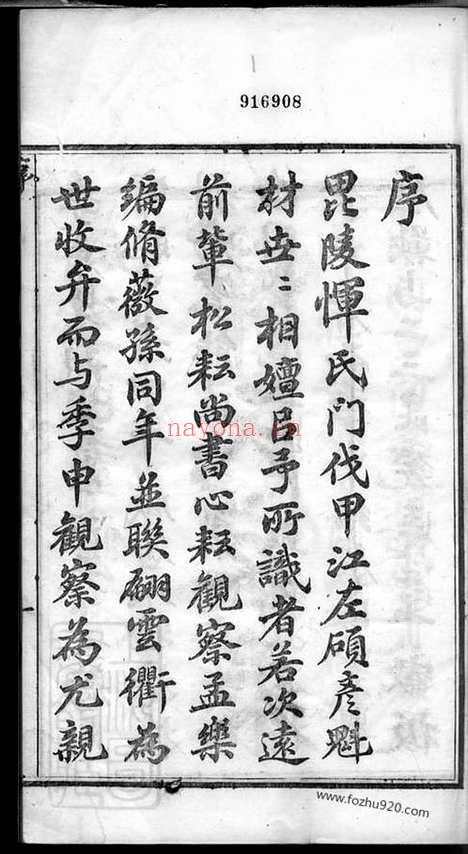 916908
序
毘陵惲氏門伐甲江左碩彥魁
材世〻相嬗㠯予所識者若次遠
前輩松耘尚書心耘觀察孟樂
編脩薇孫同年並聯翩雲衢為
世收弁而与季申觀察為尤親
序
nayona.cn
www.fozhu920.com